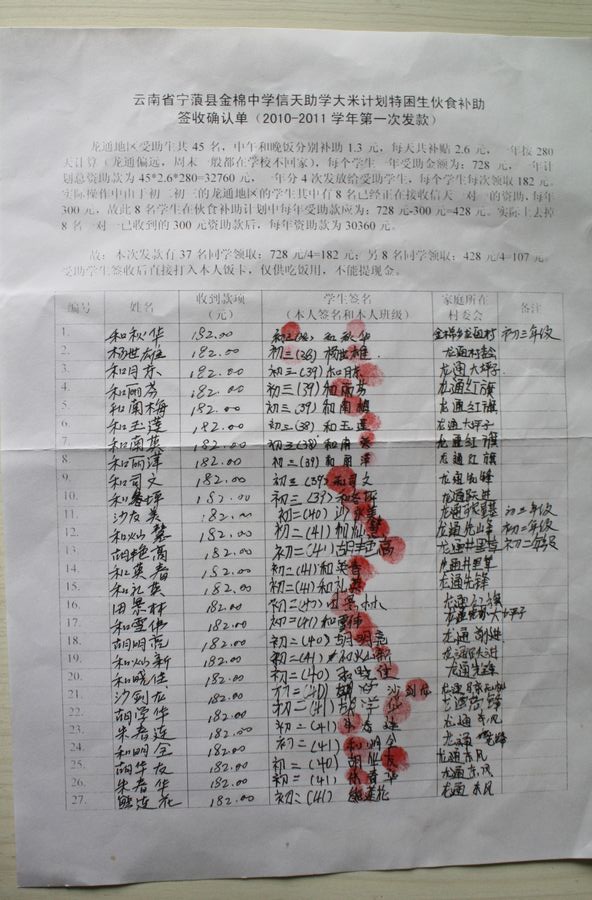 云南省宁蒗县金棉中学信天助学大米计划特困生伙食补助
签收确认单（2010-2011 学年第一次发款）
龙通地区受助生共 45 名，中午和晚饭分别补助 1.3 元，每天共补贴 2.6 元，一年按 280
天计算（龙通偏远，周末一般都在学校不回家），每个学生一年受助金额为：728 元，一年计
划总资助款为 45*2.6*280=32760 元，一年分 4 次发放给受助学生，每个学生每次领取 182 元。
实际操作中由于初二初三的龙通地区的学生其中有 8 名已经正在接收信天一对一的资助，每年
300 元，故此 8 名学生在伙食补助计划中每年受助款应为：728 元-300 元=428 元。实际上去掉
8 名一对一已收到的 300 元资助款后，每年资助款为 30360 元。
故：本次发款有 37 名同学领取：728 元/4=182 元；另 8 名同学领取：428 元/4=107 元。
受助学生签收后直接打入本人饭卡，仅供吃饭用，不能提现金。
编号 姓名 收到款项（元） 学生签名（本人签名和本人班级） 家庭所在村委会 备注
1. 和秋华 182.00 初三 和秋华 初三年级
2. 杨世雄 182.00 初三(38) 杨世雄
3. 和月东 182.00 初三(39) 和月东 龙通大坪子
4. 和丽芬 182.00 初三(39) 和丽芬 龙通红旗
5. 和南梅 182.00 初三(39) 和南梅 龙通红旗
6. 和玉莲 182.00 初三(38) 和玉莲 龙通大坪子
7. 和南英 182.00 初三(38) 和南英 龙通红旗
8. 和丽萍 182.00 初三(39) 和丽萍 龙通红旗
9. 和司文 182.00 初三(39) 和司文 龙通
10. 182.00 初三(39) 龙通跃进
11. 沙友美 182.00 初二(40) 沙友美 龙通 初二年级
12. 和灿慧 182.00 初二(41) 和灿慧 龙通 初二年级
13. 胡艳高 182.00 初二(41) 胡艳高 龙通 初二年级
14. 和英春 182.00 初二(41) 和英春 龙通
15. 和礼英 182.00 初二(41) 和礼英 龙通先锋
16. 田景林 182.00 初二(40) 田景林 龙通
17. 和雪伟 182.00 初二(41) 和雪伟 龙通 大坪子
18. 胡明亮 182.00 初二(40) 胡明亮 龙通
19. 和灿新 182.00 初二(41) 和灿新 龙通
20. 和晓佳 182.00 初二(40) 和晓佳 龙通先锋
21. 沙剑龙 182.00 初二(40) 沙剑龙 龙通
22. 胡学华 182.00 初二(41) 龙通
23. 朱春连 182.00 初二(41) 朱春连 龙通东风
24. 和明全 182.00 初二(41) 和明全 龙通
25. 胡华友 182.00 初二(40) 龙通东风
26. 朱春华 182.00 初二(41) 朱春华 龙通东风
27. 熊莲花 182.00 初二(41) 熊莲花 龙通东风